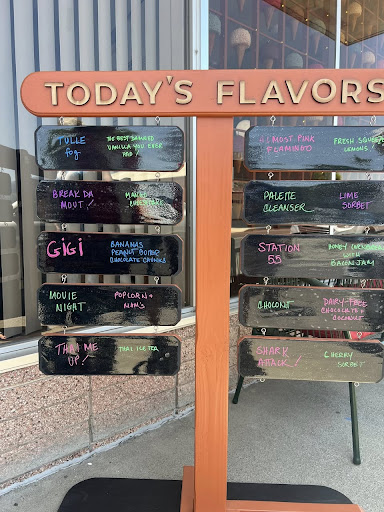 TODAY'S FLAVORS
TULLE
fog
THE BEST
VANILLA YOU EVER
HAD
BREAK DA
MOUT!
MANGO
GiGi
BANANAS
PEANUT
CHOCOLATE CHUNKS
MOVIE
NIGHT
POPCORN +
M&M's
THAI ME
UP!
THAI ICE TEA
ALMOST PINK
FLAMINGO
FRESH SQUEEZE
LEMONS!
PALETTE
CLEANSER
LIME
SORBET
STATION
55
HONEY CORNBREAD
WITH
BACON JAM
CHOCONUT
DAIRY-FREE
CHOCOLATE +
COCONUT
SHARK
ATTACK!
CHERRY
SORBET